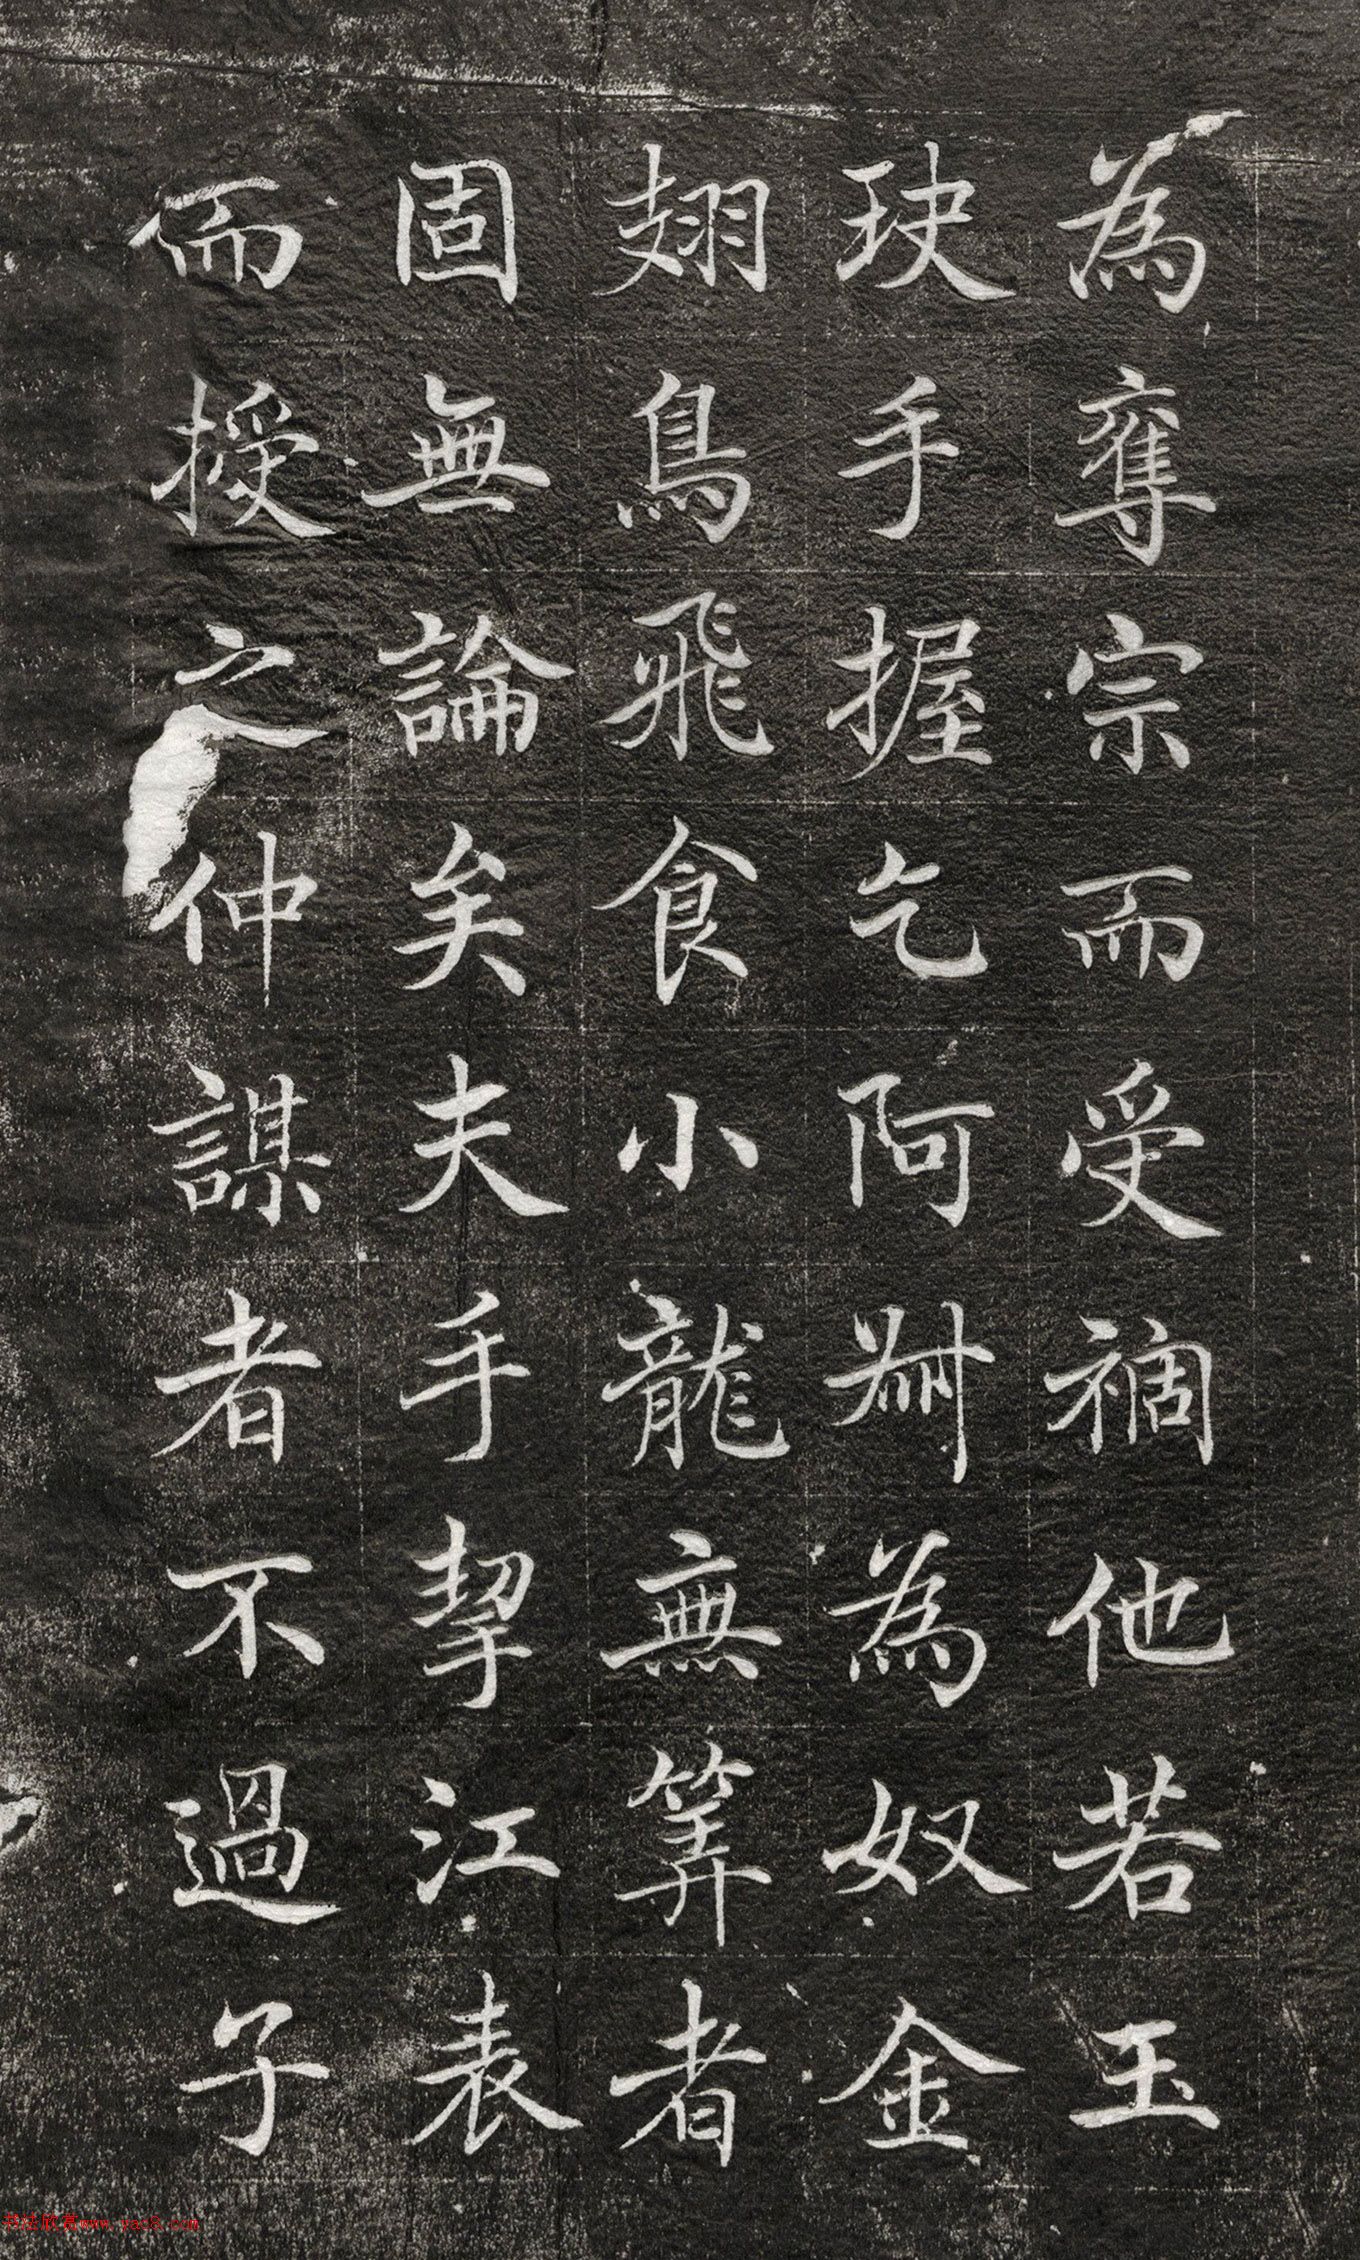 為奪宗而受禍他若玉
玦手握乞阿㓸為奴金
翅鳥飛食小龍無筭者
固無論矣夫手挈江表
而授之仲謀者不過子
书法欣赏www.yac8.com